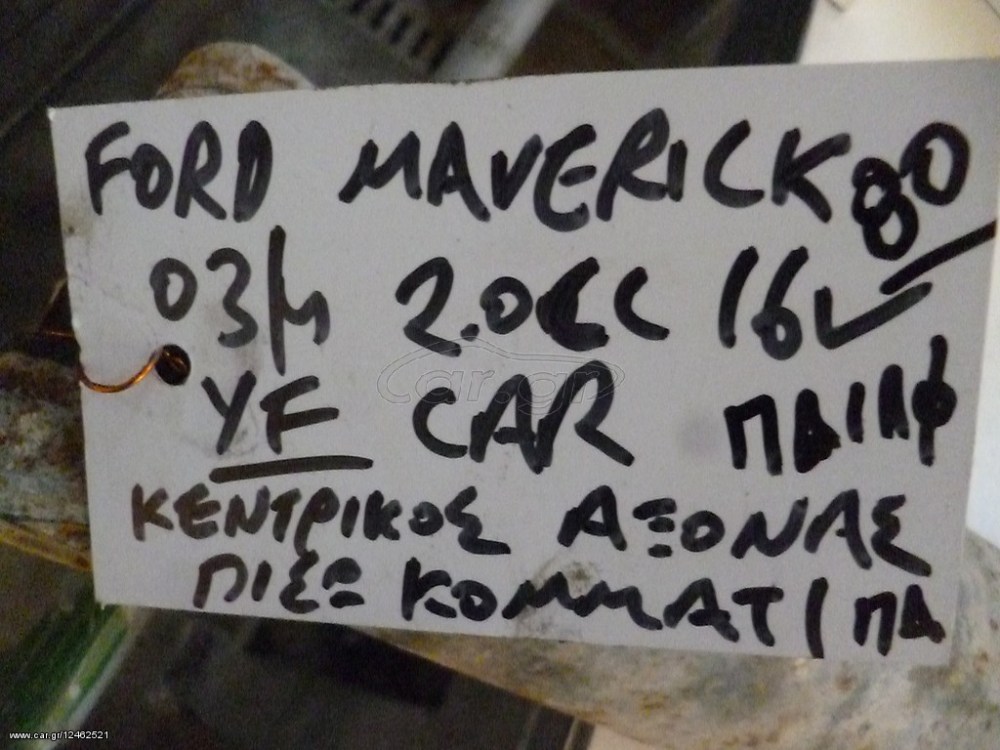 FORD MAVERICK 80
03/μ 2.0CC 16V
YF CAR
ΚΕΝΤΡΙΚΟΣ ΑΞΟΝΑΣ
ΠΙΣΩ ΚΟΜΜΑΤΙ ΠΔ
car.gr
www.car.gr/12462521